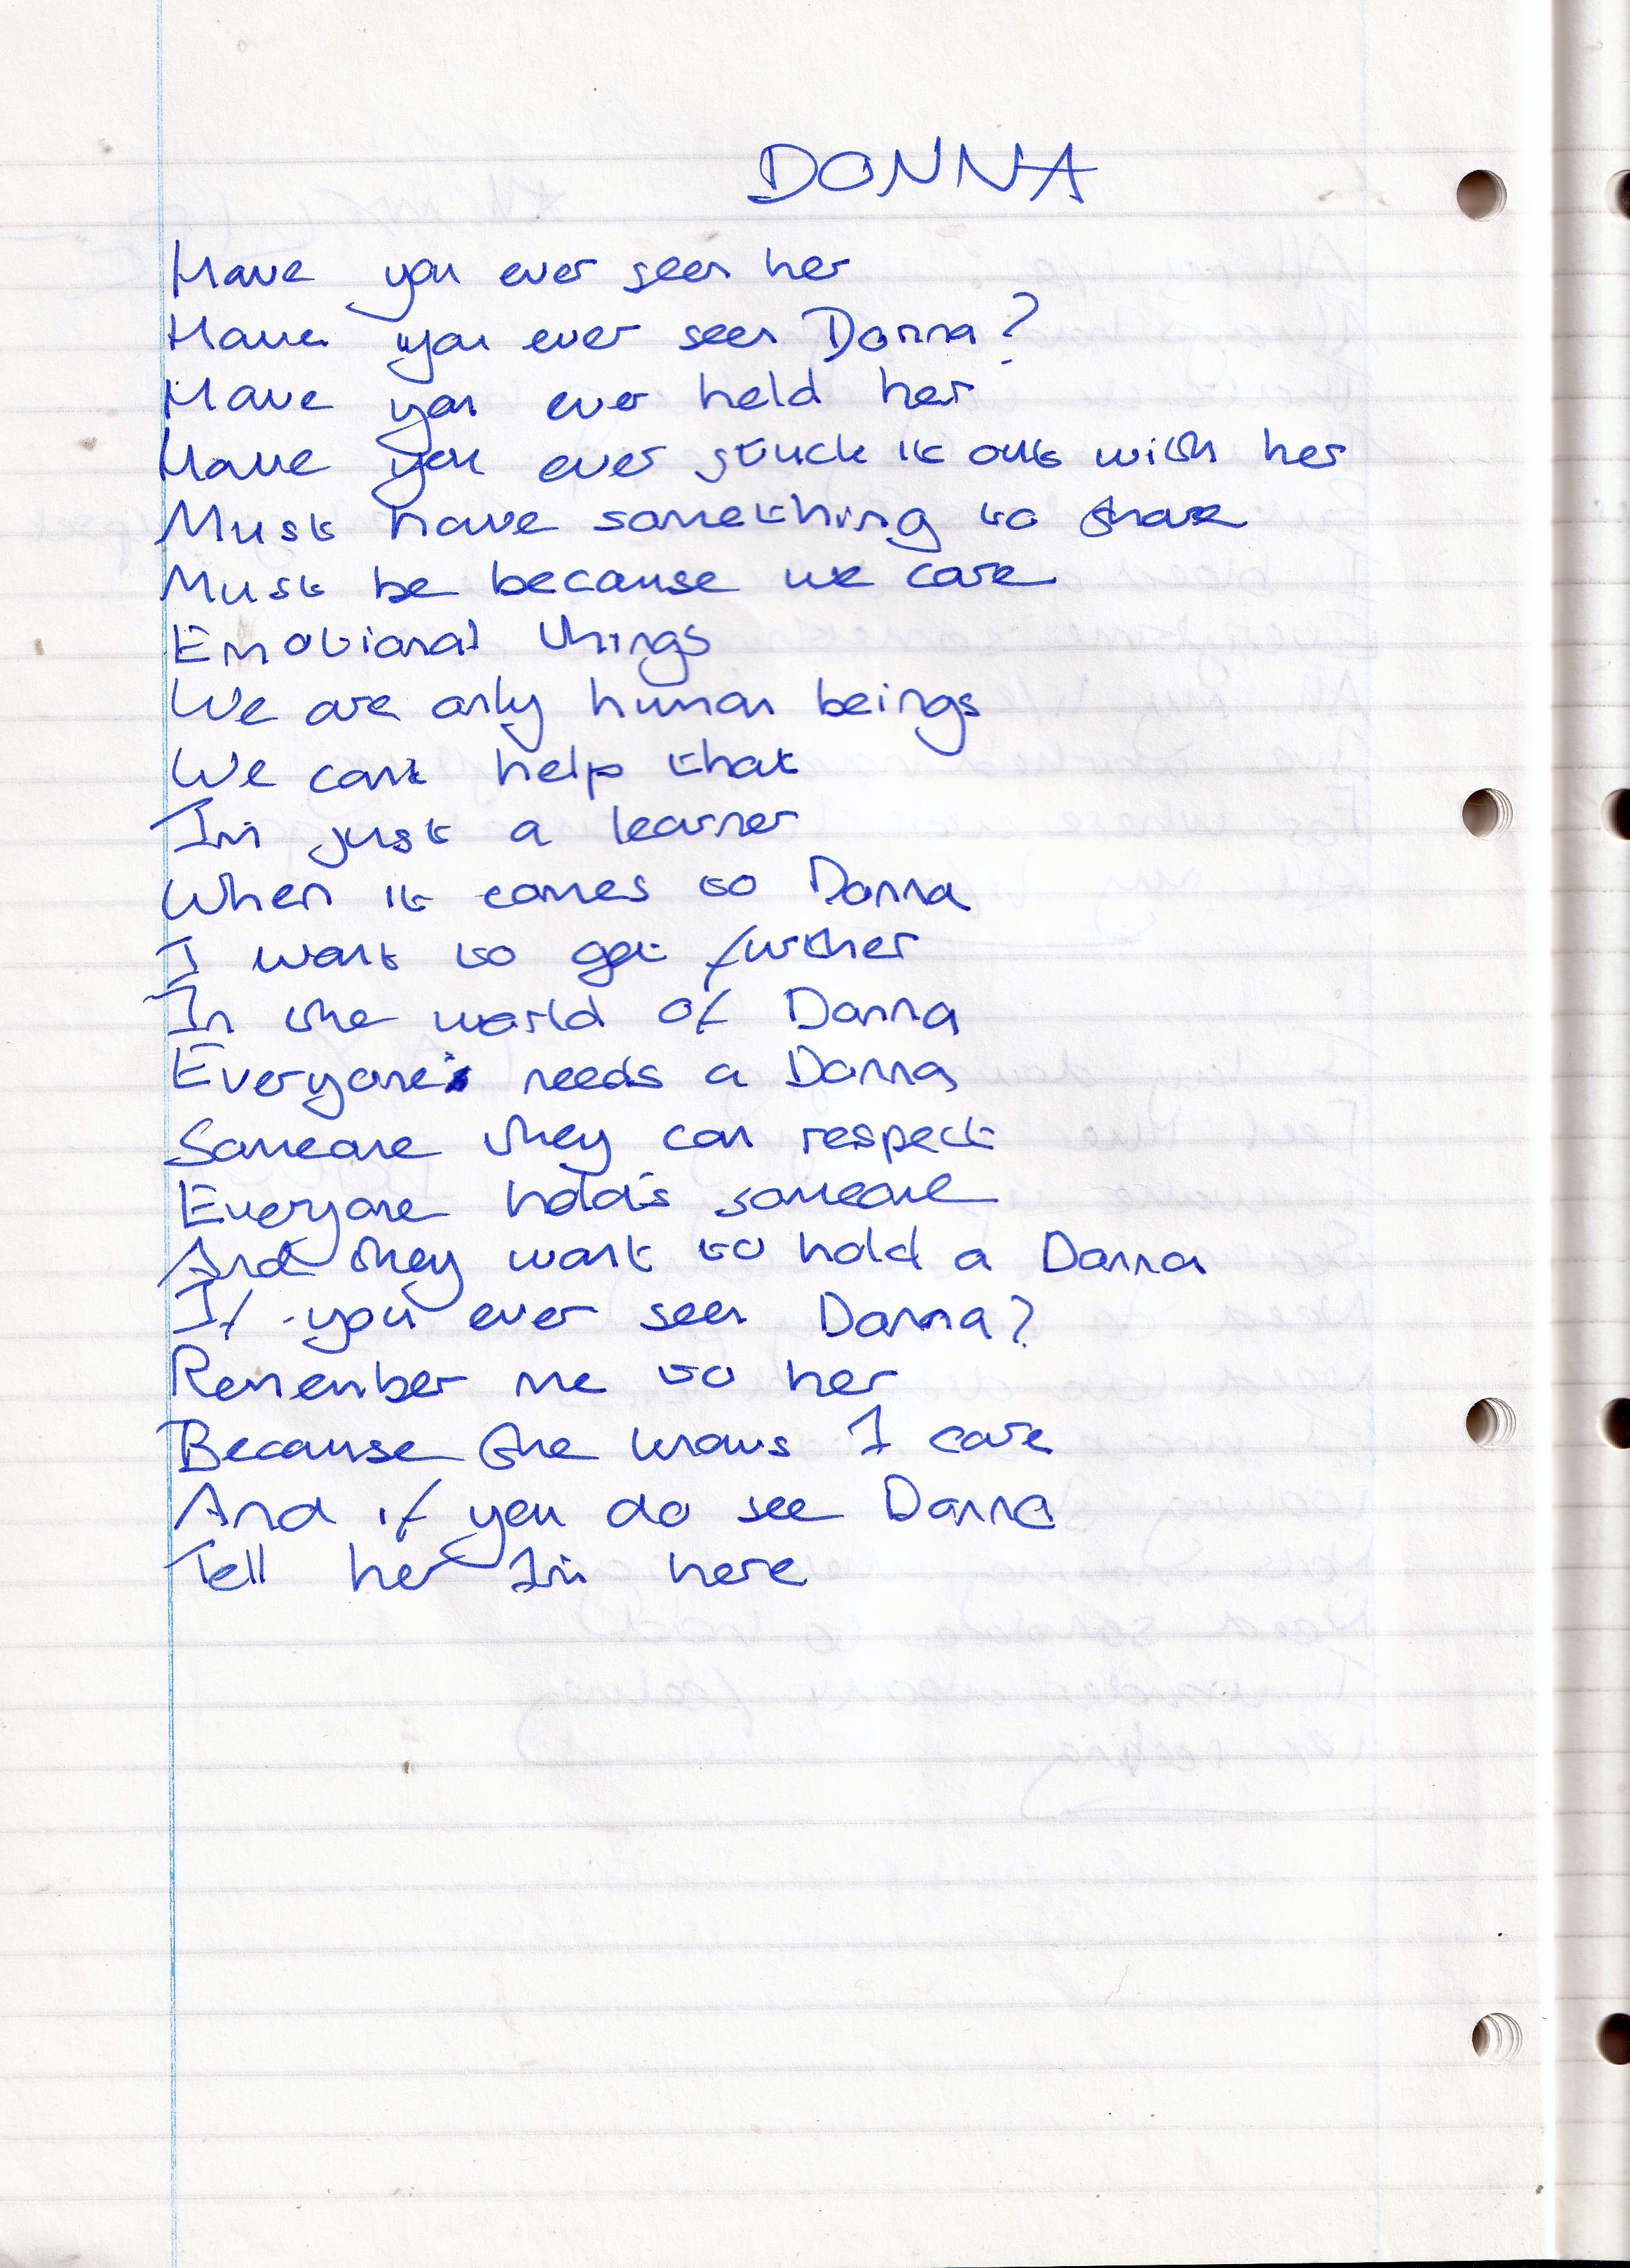 DONNA
Have you ever seen her
Have you ever seen Donna?
Have you ever held her
Have you ever stuck it out with her
Must have something to share
Must be because we care
Emotional things
We are only human beings
We cant help that
I'm just a learner
When it comes to Donna
I want to get further
In the world of Donna
Everyone needs a Donna
Someone they can respect
Everyone holds someone
And they want to hold a Donna
If you ever seen Donna?
Remember me to her
Because she knows I care
And if you do see Donna
Tell her I'm here